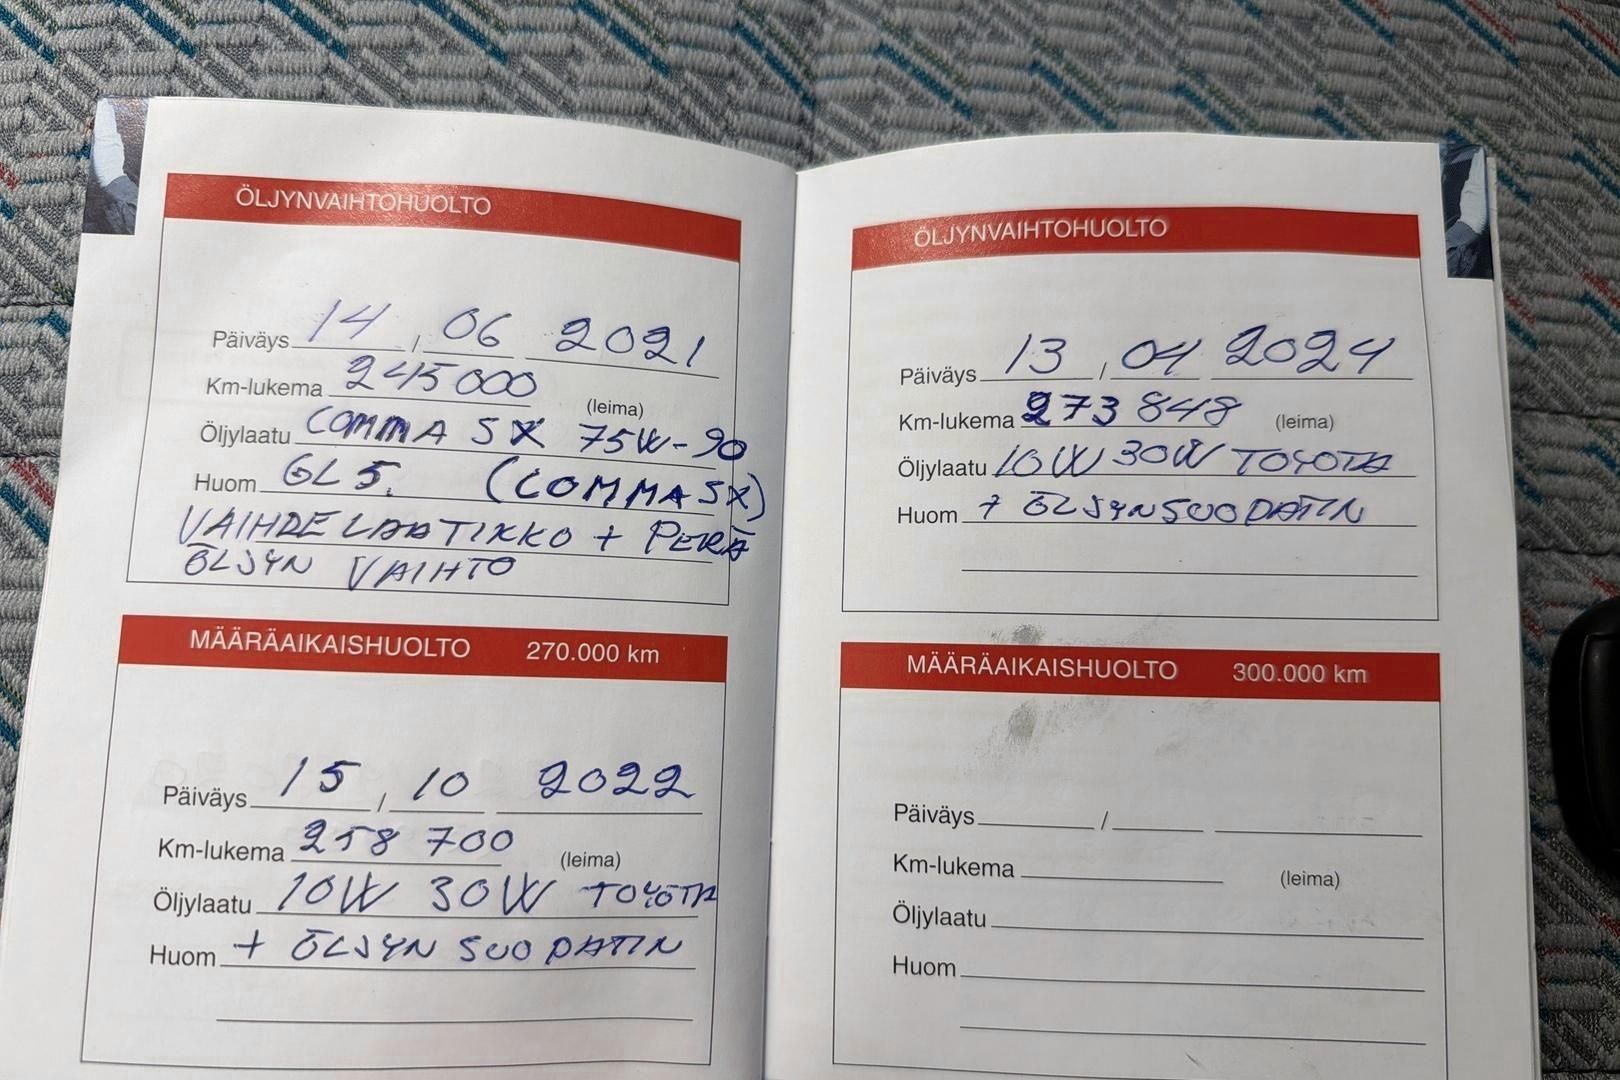 ÖLJYNVAIHTOHUOLTO
Päiväys 14 / 06 2021
Km-lukema 245 000 (leima)
Öljylaatu COMMA SX 75W-90
Huom GL 5. (COMMA SX)
VAIHDELAATIKKO + PERÄ
ÖLJYN VAIHTO
MÄÄRÄAIKAISHUOLTO 270.000 km
Päiväys 15 / 10 2022
Km-lukema 258 700 (leima)
Öljylaatu 10W 30W TOYOTA
Huom + ÖLJYN SUODATIN
ÖLJYNVAIHTOHUOLTO
Päiväys 13 / 04 2024
Km-lukema 273 848 (leima)
Öljylaatu 10W 30W TOYOTA
Huom + ÖLJYNSUODATIN
MÄÄRÄAIKAISHUOLTO 300.000 km
Päiväys /
Km-lukema (leima)
Öljylaatu
Huom